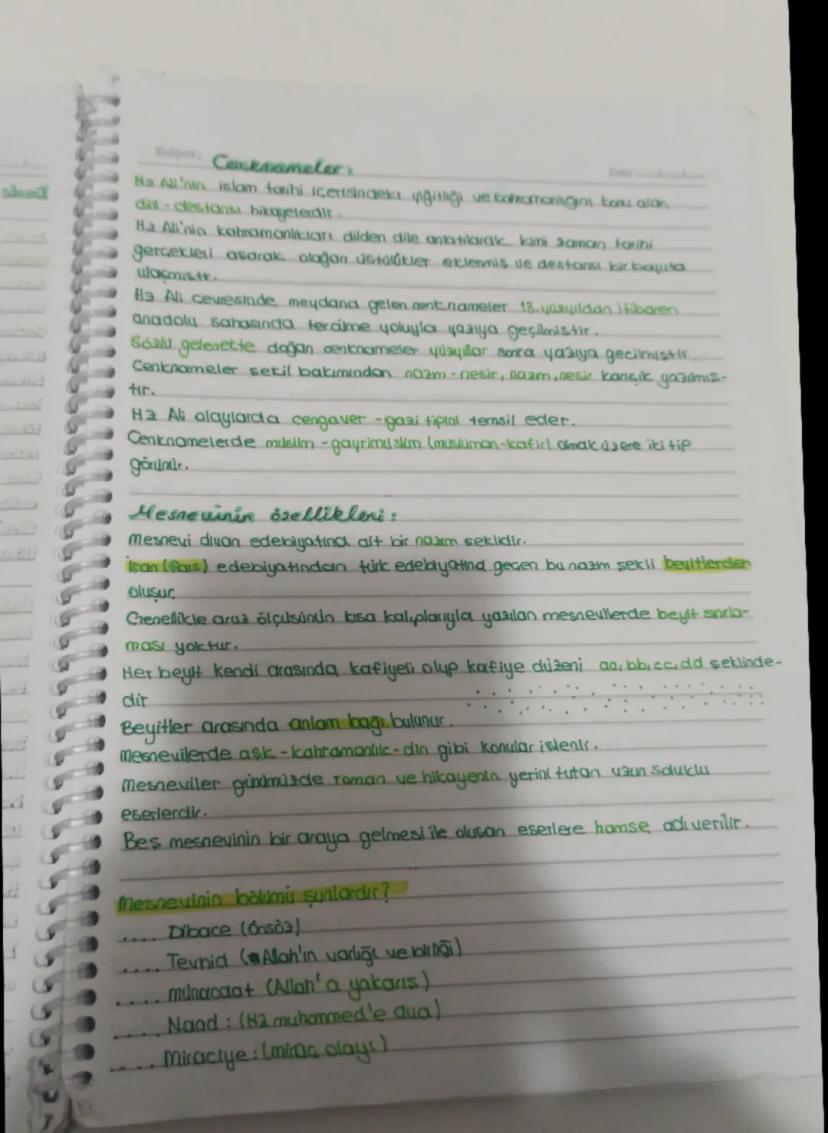 Cenknameler:
Hz Ali'nin islam tarihi içerisindeki yiğitliği ve kahramanlığını konu alan
dini-destansı hikayelerdir.
Hz Ali'nin kahramanlıkları dilden dile anlatılarak kimi zaman tarihi
gerçekleri aşarak olağan üstülükler eklenmiş ve destansı bir boyuta
ulaşmıştır.
Hz Ali çevresinde meydana gelen cenknameler 13.yüzyıldan itibaren
anadolu sahasında tercüme yoluyla yazıya geçilmiştir.
Sözlü gelenekte doğan cenknameler yüzyıllar sonra yazıya geçilmiştir.
Cenknameler şekil bakımından nazm-nesir, nazm, nesir karışık yazılmış-
tır.
Hz Ali olaylarda cengaver-gazi tipini temsil eder.
Cenknamelerde müslim-gayrimüslim (müslüman-kafir) olmak üzere iki tip
görünür.
Mesnevinin özellikleri:
Mesnevi divan edebiyatına ait bir nazım şeklidir.
İran (fars) edebiyatından türk edebiyatına geçen bu nazm şekli beyitlerden
oluşur.
Genellikle aruz ölçüsünün kısa kalıplarıyla yazılan mesnevilerde beyit sınırla-
ması yoktur.
Her beyit kendi arasında kafiyeli olup kafiye düzeni aa,bb,cc,dd şeklinde-
dir
Beyitler arasında anlam bağı bulunur.
Mesnevilerde aşk-kahramanlık-din gibi konular işlenir.
Mesneviler günümüzde roman ve hikayenin yerini tutan uzun soluklu
eserlerdir.
Beş mesnevinin bir araya gelmesi ile oluşan eserlere hamse adı verilir.
Mesnevinin bölümü şunlardır?
.... Dibace (önsöz)
.... Tevhid (Allah'ın varlığı ve birliği)
.... münacaat (Allah'a yakarış)
.... Naad : (Hz muhammed'e dua)
.... Miraciye : (miraç olayı)